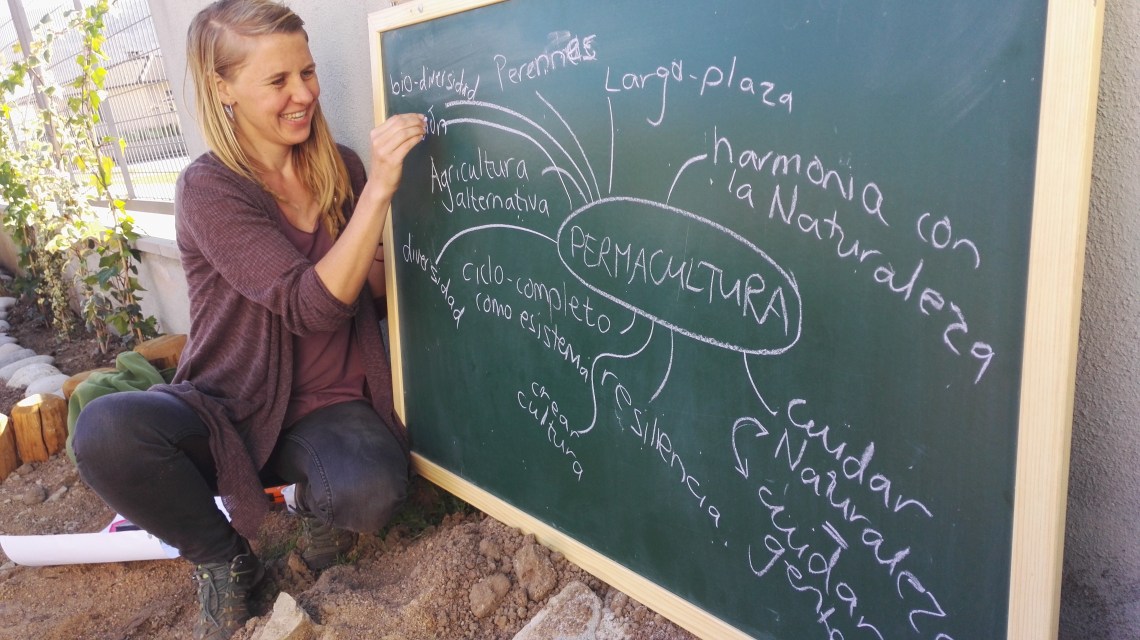 bio-diversidad
Perennes
Largo-plaza
Agricultura
alternativa
harmonia con
la Naturaleza
PERMACULTURA
diversidad
ciclo-completo
como esistema
crear
cultura
resiliencia
cuidar
Naturaleza
=
cuidar
gente